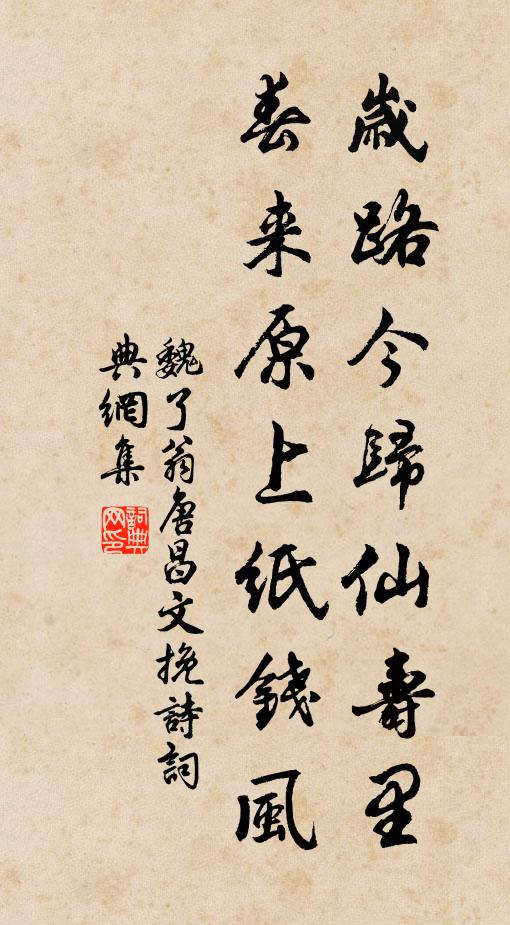 歲路今歸仙壽里
春來原上紙錢風
魏了翁唐昌文挽詩詞
典網集
詞典網印